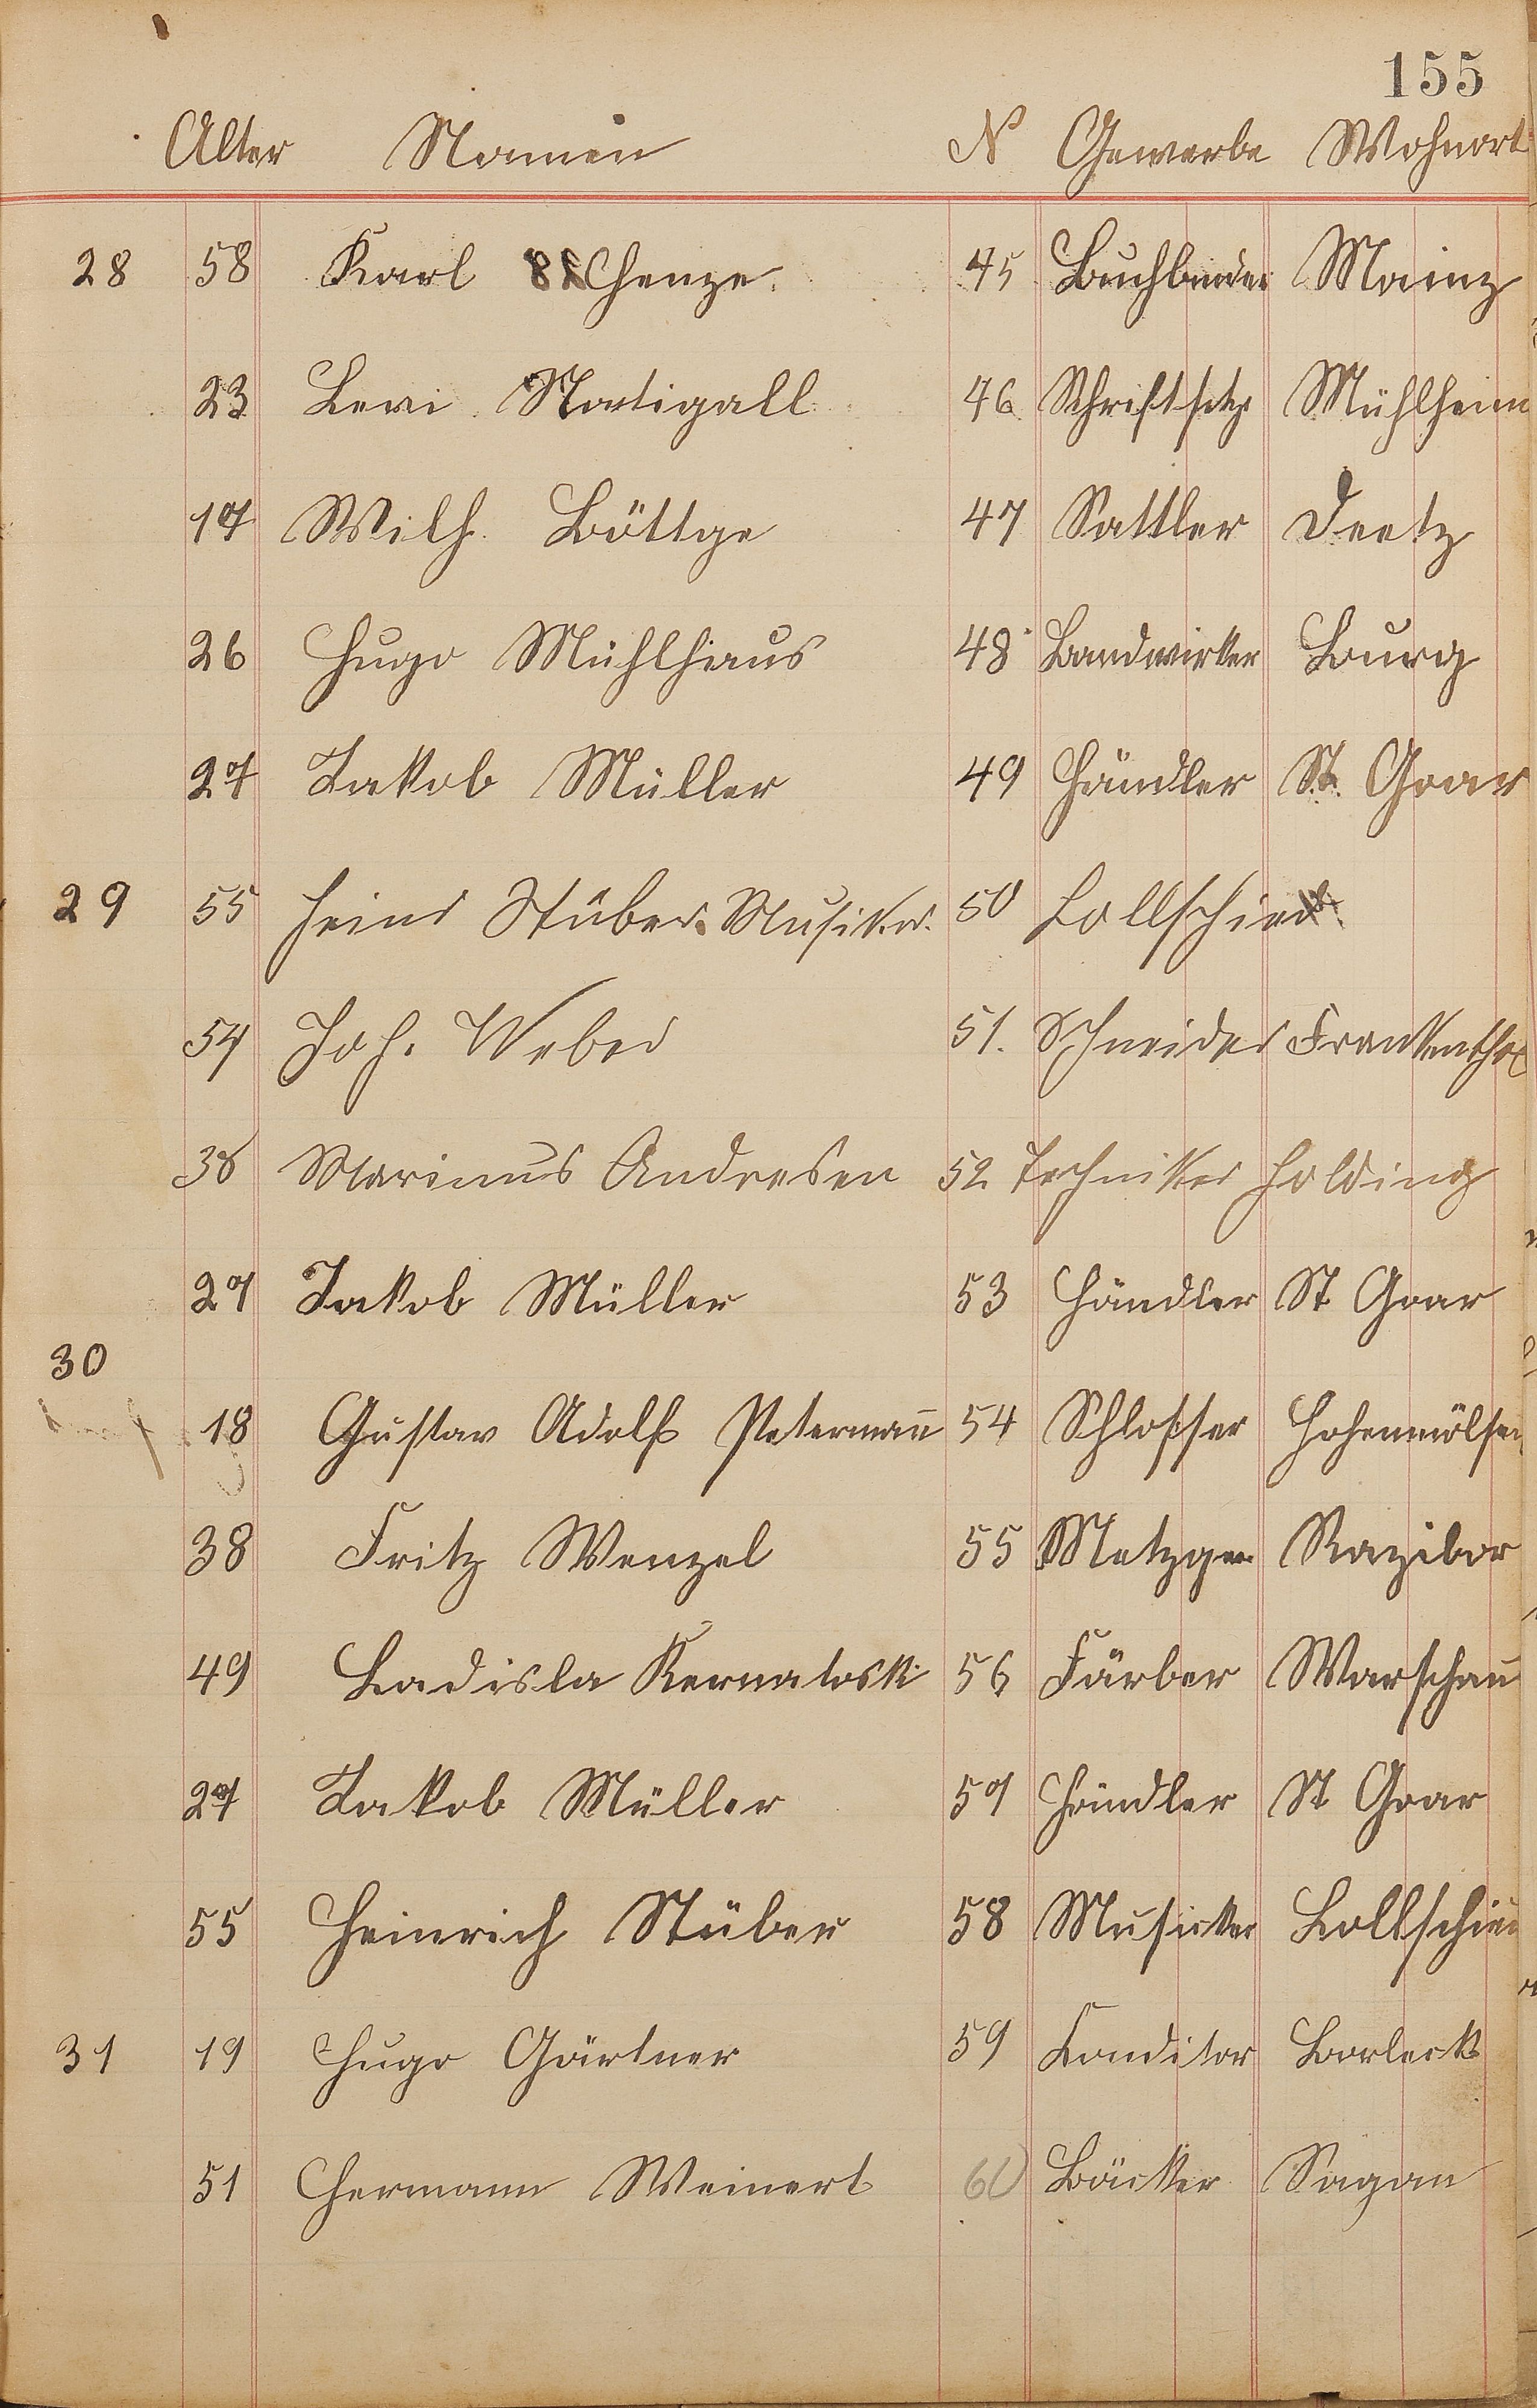 155
Alter Namen N Gewerbe Wohnort
28 58 Karl Henze. 45 Buchbinder Mainz
23 Levi Natigall 46 Schriftsetz Mühlheim
17 Wilh. Böttge 47 Sattler Deetz
26 Hugo Mühlhaus 48 Bandwirker Burg
27 Jakob Müller 49 Händler St. Goar
29 55 Heinr Stüber. Musiker. 50 Lollschied
54 Joh. Weber 51. Schneider Frankenthal
38 Marinus Andresen 52 Techniker Holding
27 Jakob Müller 53 Händler St Goar
30
18 Gustav Adolf Petermañ 54 Schlosser Hohenmölsen
38 Fritz Wenzel 55 Metzger Razibor
49 Ladisla Kernatoski 56 Färber Warschau
27 Jakob Müller 57 Händler St Goar
55 Heinrich Stüber 58 Musicker Lollschied
31 19 Hugo Gärtner 59 Conditor Borleck
51 Hermann Weinert 60 Bäcker Sagan